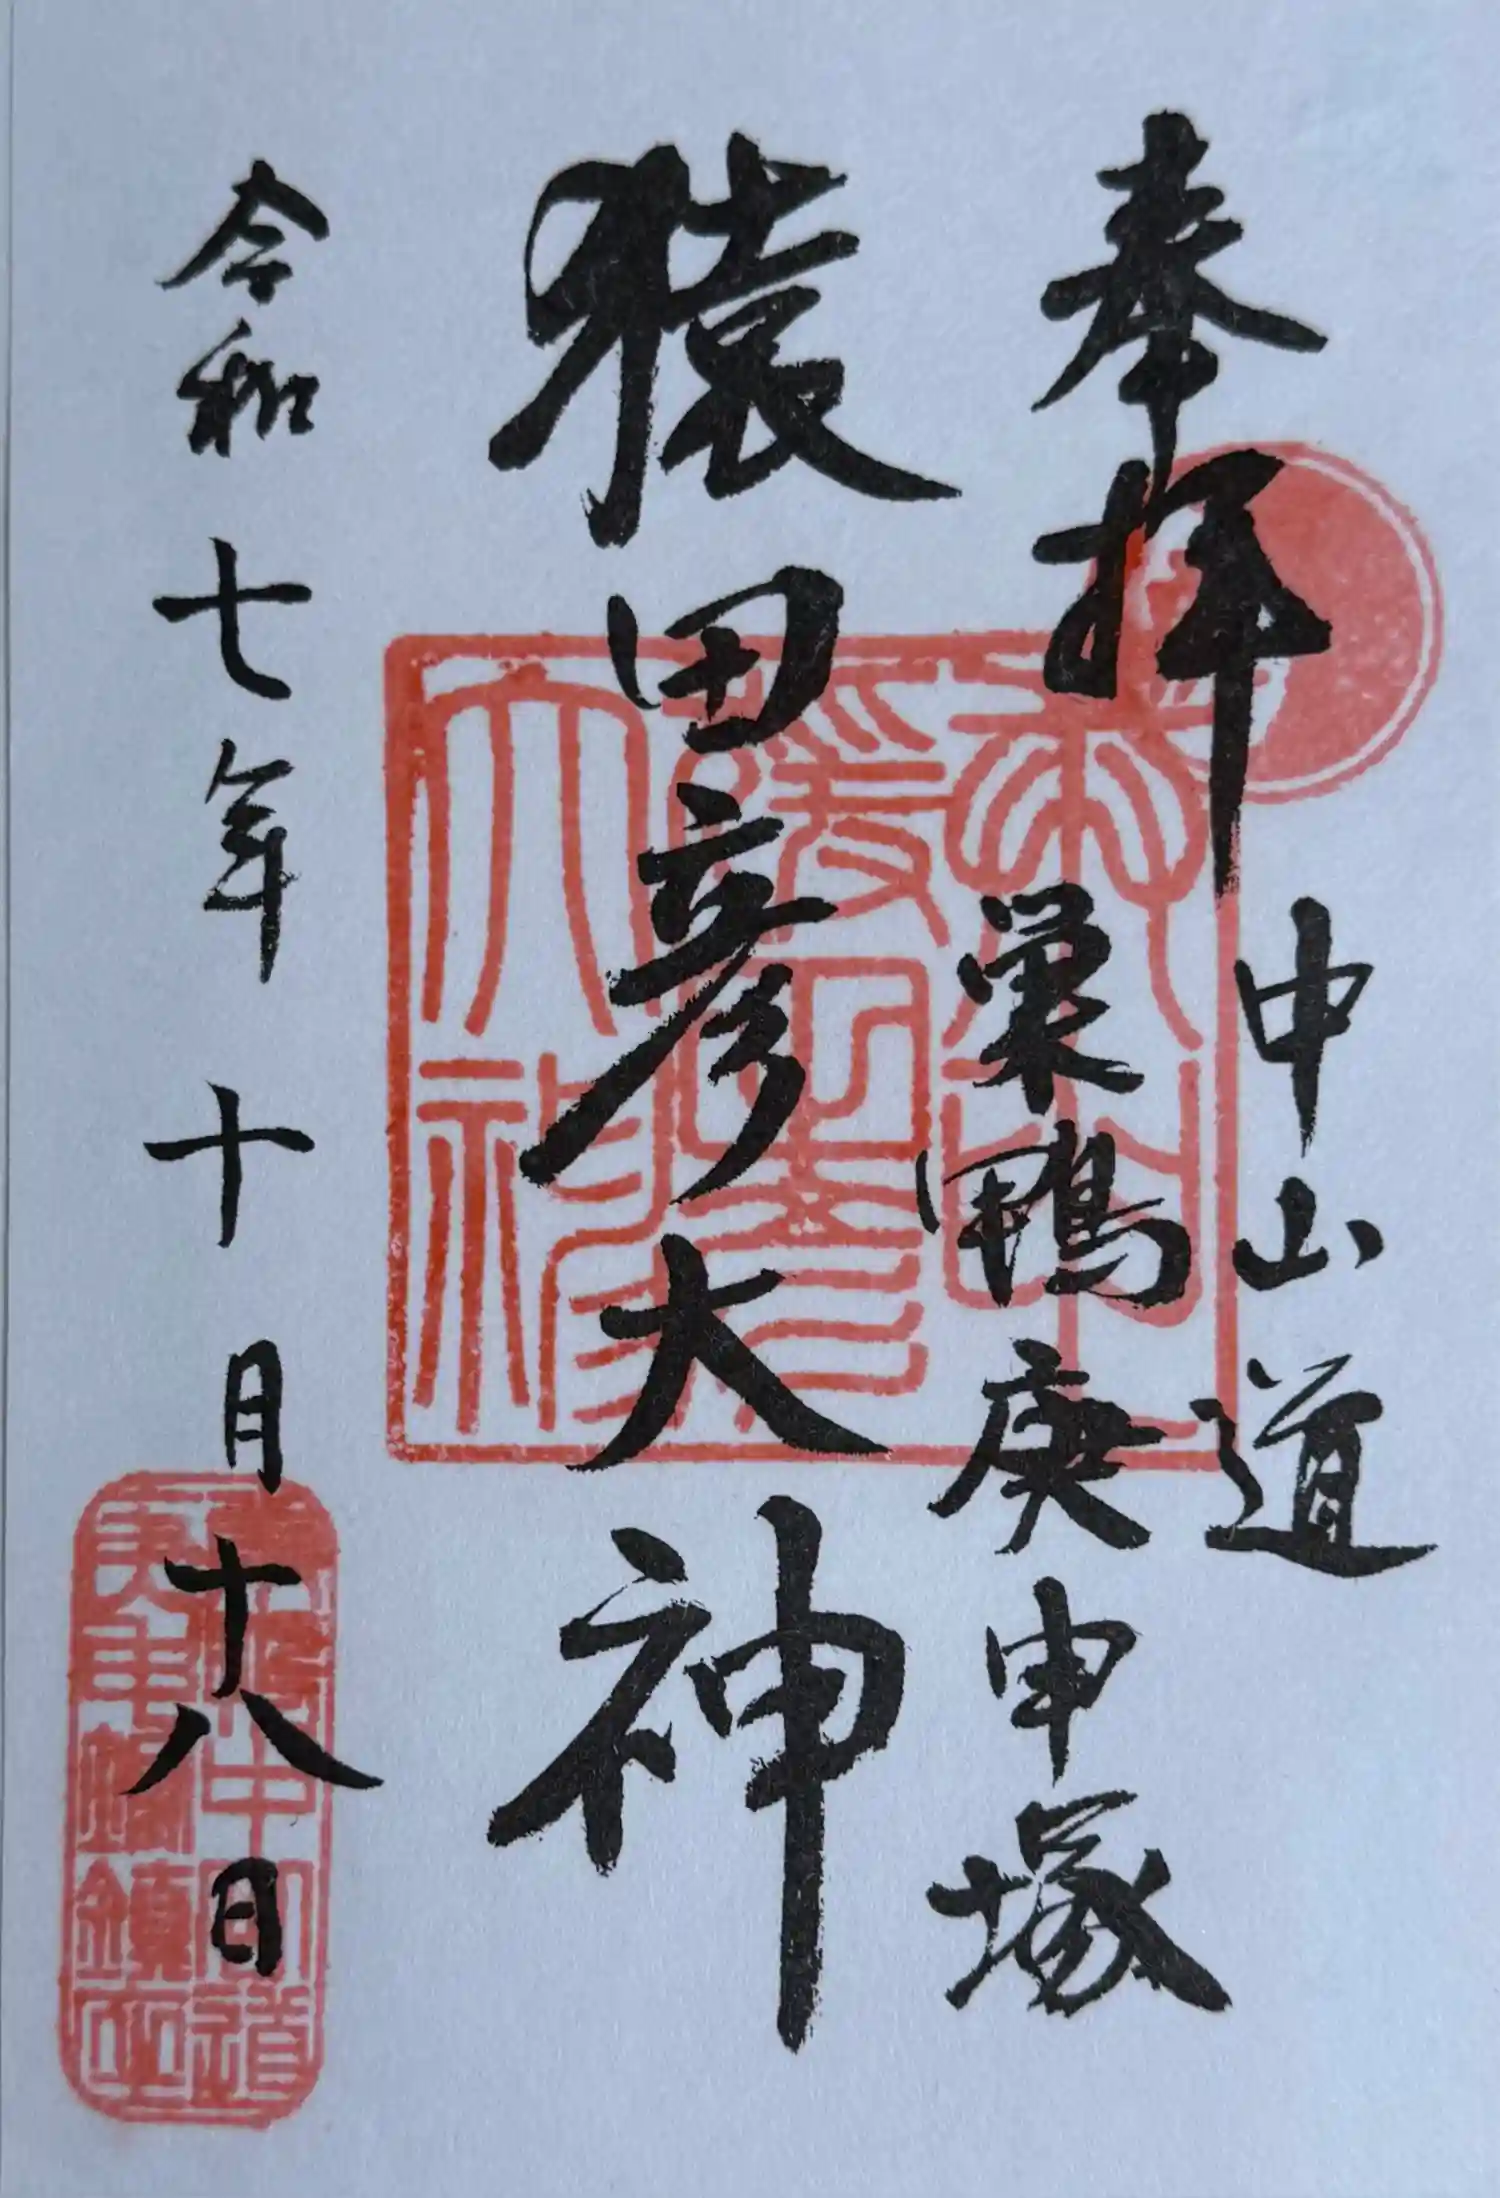 奉拝
中山道
巣鴨庚申塚
猿田彦大神
令和七年十月十八日